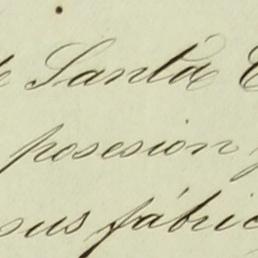 de Santa
posesion
sus fábric